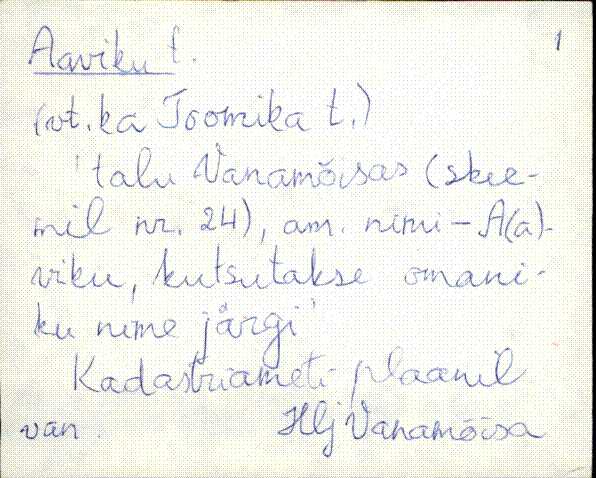 Aaviku t. 1
(vt. ka Toomika t.)
'talu Vanamõisas (skee-
mil nr. 24), am. nimi - A(a)-
viku, kutsutakse omani-
ku nime järgi'
Kadastriameti plaanil
van. Hlj Vanamõisa